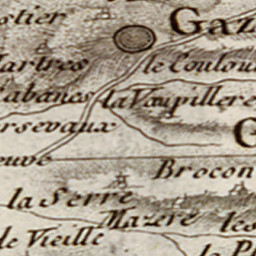 stier
GAZ
artres
le Coulou
abanes
la Vaupillere
rsevaux
G
euve
Brocon
la Serre
Mazere
les
de Vieille
la P